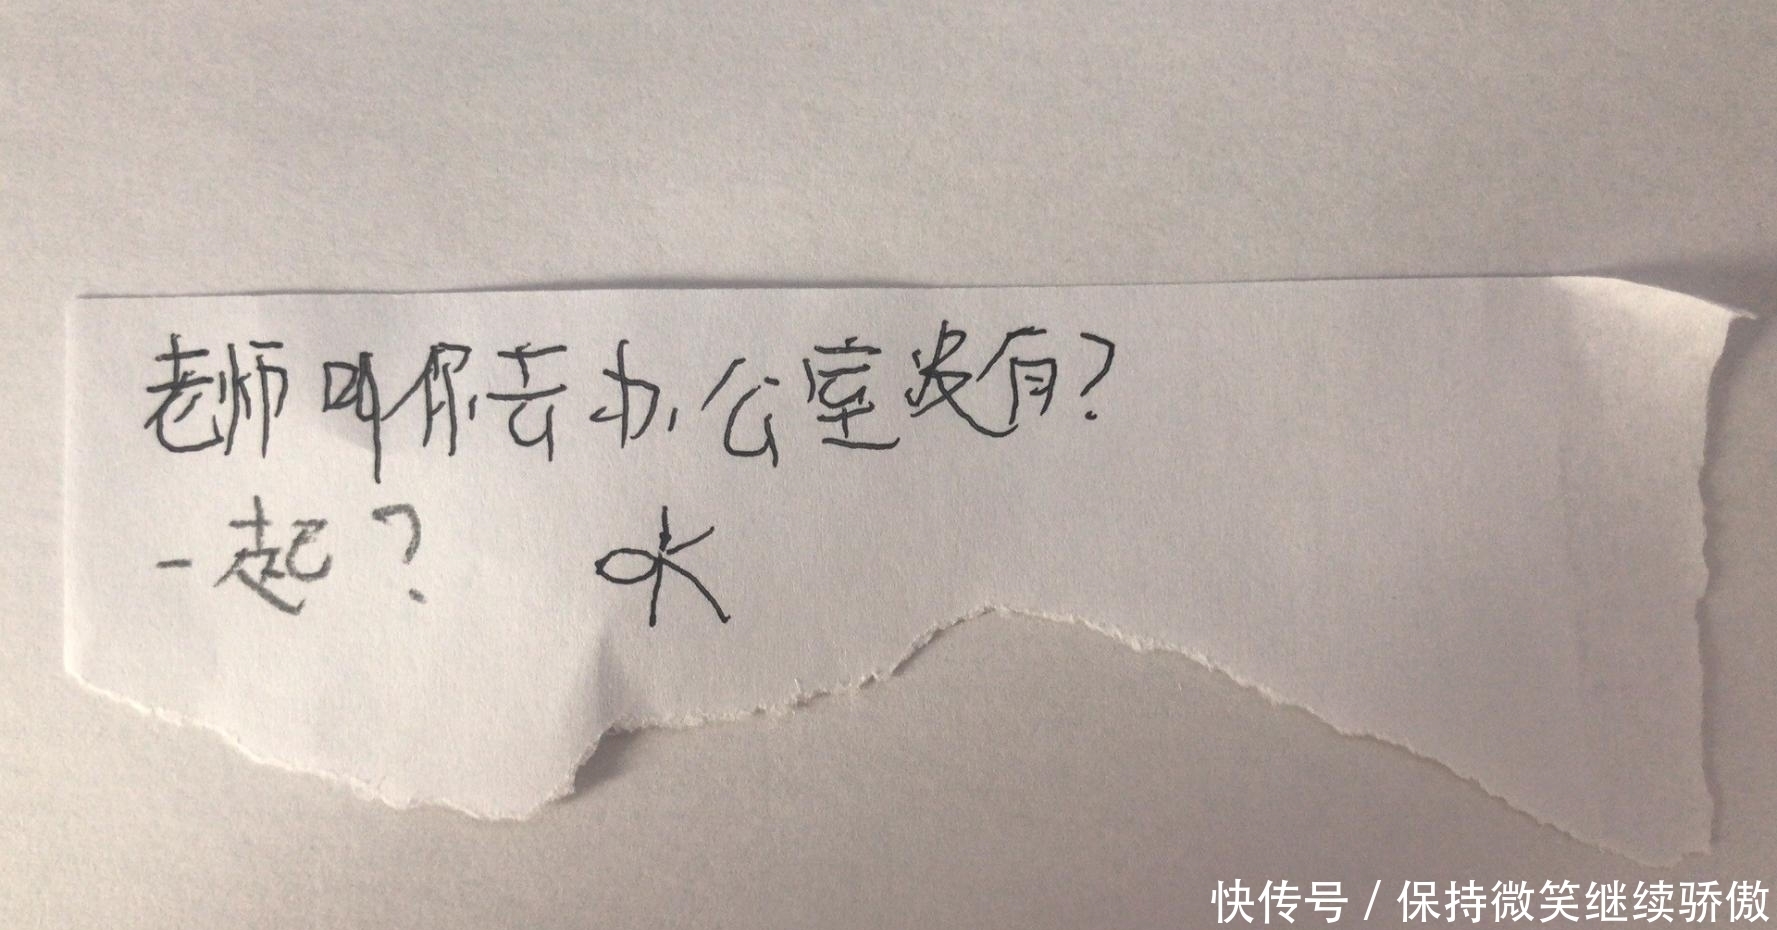 老师叫你去办公室没有?
一起? ok
快传号 / 保持微笑继续骄傲